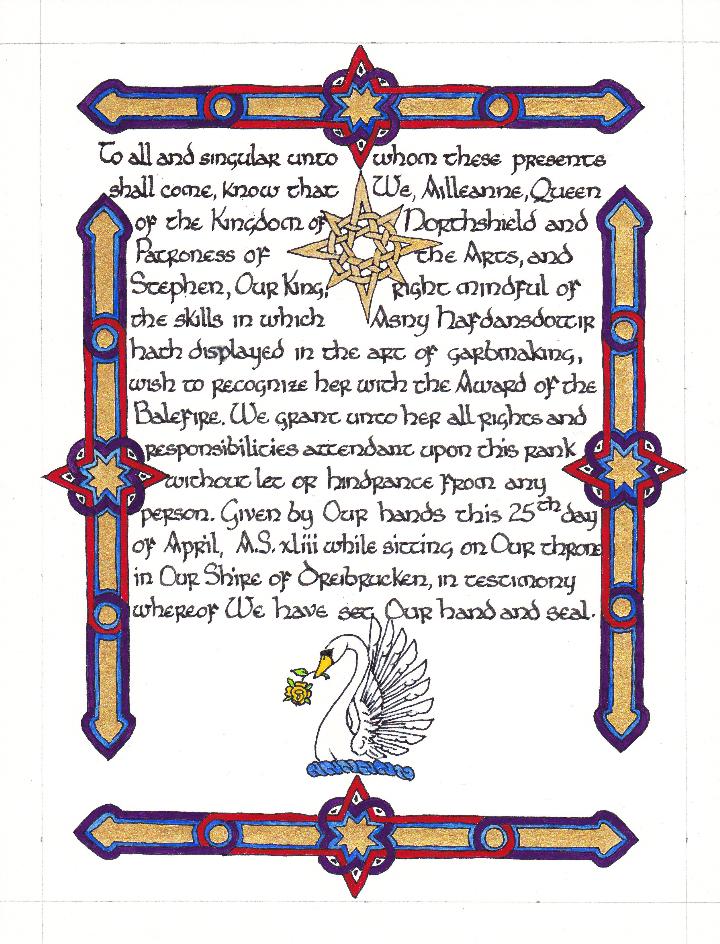 To all and singular unto whom these presents
shall come, know that We, Ailleanne, Queen
of the Kingdom of Northshield and
Patroness of the Arts, and
Stephen, Our King, right mindful of
the skills in which Asny Hafdansdottir
hath displayed in the art of garbmaking,
wish to recognize her with the Award of the
Balefire. We grant unto her all rights and
responsibilities attendant upon this rank
without let or hindrance from any
person. Given by Our hands this 25th day
of April, A.S. xliii while sitting on Our throne
in Our Shire of Dreibrucken, in testimony
whereof We have set Our hand and seal.